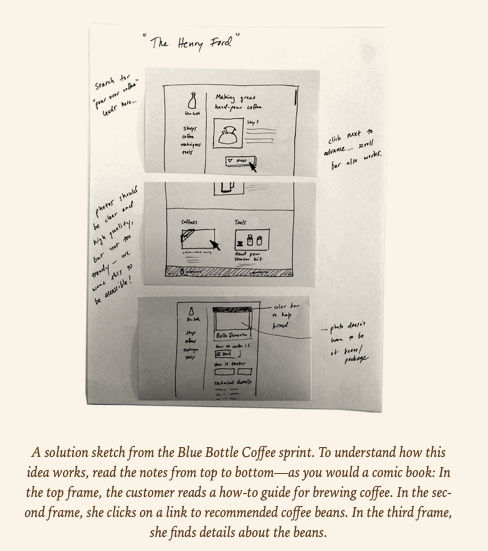 "The Henry Ford"
Search for
"pour over coffee"
leads here...
Making great
hand-pour coffee
Step 1
shops
coffee
tools
Next
click next to
advance... scroll
bar also works.
photos should
be clear and
high quality,
but not too
trendy — we
want this to
be accessible!
Coffees
Tools
color bar
to help
brand
Bella Donovan
How to make it
How it tastes
Technical details
shops
coffee
tools
photo doesn't
have to be
of beans/
package
A solution sketch from the Blue Bottle Coffee sprint. To understand how this
idea works, read the notes from top to bottom—as you would a comic book: In
the top frame, the customer reads a how-to guide for brewing coffee. In the sec-
ond frame, she clicks on a link to recommended coffee beans. In the third frame,
she finds details about the beans.